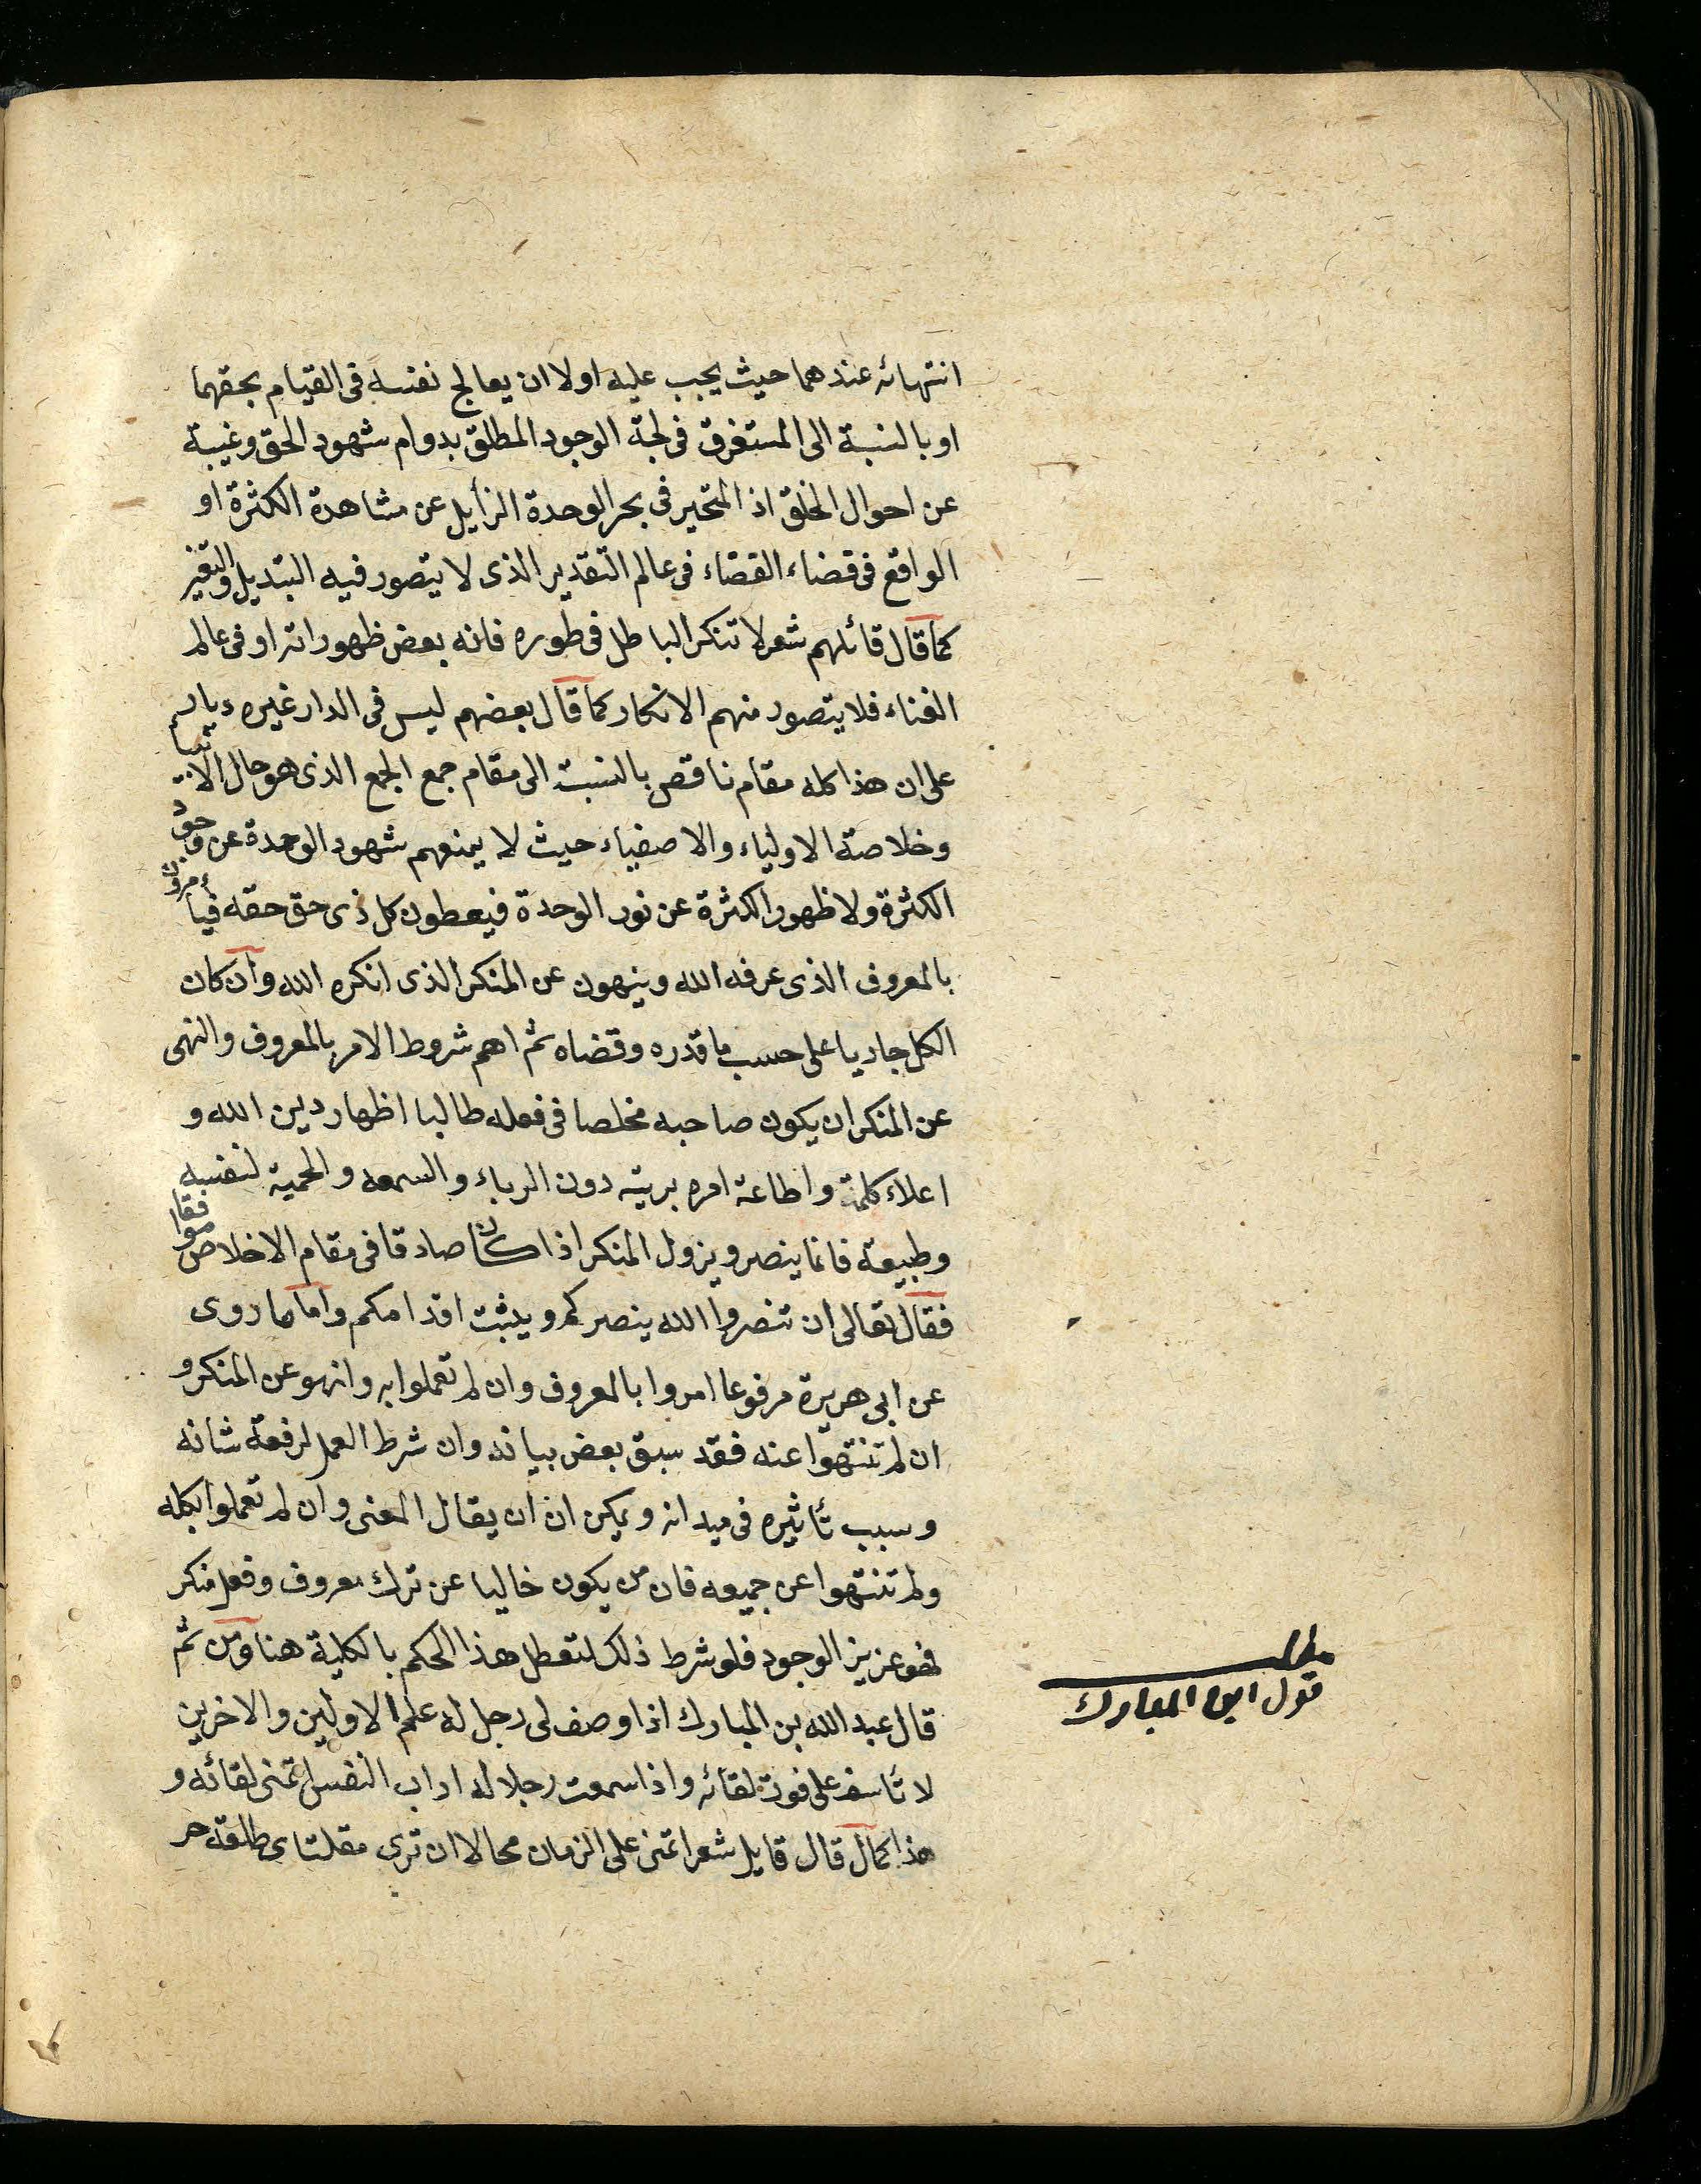 انتهائه عندهما حيث يجب عليه اولا ان يعالج نفسه فى القيام بحقهما
او بالنسبة الى المستغرق فى لجة الوجود المطلق بدوام شهود الحق وغيبة
عن احوال الخلق اذ المتحير فى بحر الوحدة الزايل عن مشاهدة الكثرة او
الواقع فى قضاء القضاء فى عالم التقدير الذى لا يتصور فيه التبديل والتغير
كما قال قائلهم شعر لا تنكر الباطل فى طوره فانه بعض ظهوراته او فى عالم
الفناء فلا يتصور منهم الانكار كما قال بعضهم ليس فى الدار غيره ديار
على ان هذا كله مقام ناقص بالنسبت الى مقام جمع الجمع الذى هو حال الانبياء
وخلاصة الاولياء والاصفياء حيث لا يمنعهم شهود الوحدة عن وجود
الكثرة ولا ظهور الكثرة عن نور الوحدة فيعطون كل ذى حق حقه فيأمرون
بالمعروف الذى عرفه الله وينهون عن المنكر الذى انكره الله وان كان
الكل جاريا على حسب ما قدره وقضاه ثم اهم شروط الامر بالمعروف والنهى
عن المنكر ان يكون صاحبه مخلصا فى فعله طالبا اظهار دين الله و
اعلاء كلمته واطاعة امره بريته دون الرياء والسمعه والحمية لنفسه
وطبيعة فانما ينصر ويزول المنكر اذا كان صادقا فى مقام الاخلاص موافقا
فقال تعالى ان تنصروا الله ينصركم ويثبت اقدامكم واما ما روى
عن ابى هريرة مرفوعا امروا بالمعروف وان لم تعملوا به وانهو عن المنكر و
ان لم تنتهوا عنه فقد سبق بعض بيانه وان شرط العمل لرفعة شانه
وسبب تأثيره فى ميدانه ويمكن ان ان يقال المعنى وان لم تعملوا بكله
ولم تنتهوا عن جميعه فان من يكون خاليا عن ترك معروف وفعل منكر
فهو عزيز الوجود فلو شرط ذلك لتعطل هذا الحكم بالكلية هنا ومن ثم
قال عبد الله بن المبارك اذا وصف لى رجل له علم الاولين والاخرين
لا تأسف على فوت لقائه واذا سمعت رجلا له اداب النفس اتمنى لقائه و
هذا كمال قال قايل شعر اتمنى على الزمان محالا ان ترى مقلتاى طلعة حر
مطلب
قول ابن المبارك